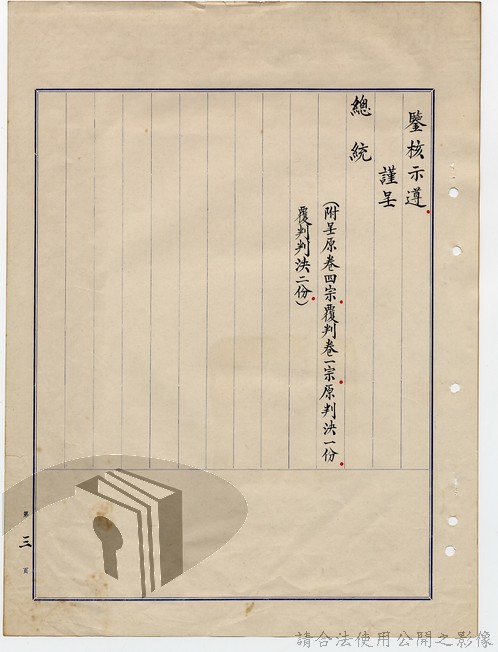 鑒核示遵
謹呈
總統
(附呈原卷四宗覆判卷一宗原判決一份
覆判判決二份)
第三頁
請合法使用公開之影像